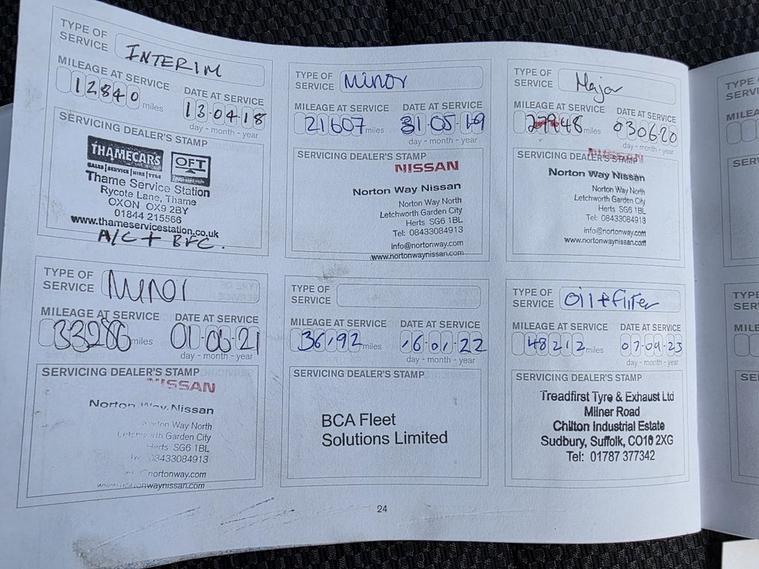 TYPE OF SERVICE INTERIM
MILEAGE AT SERVICE DATE AT SERVICE
12840 miles 13·04·18
day - month - year
SERVICING DEALER'S STAMP
THAMECARS OFT
SALES | SERVICE | HIRE | TYRE
Thame Service Station
Rycote Lane, Thame
OXON OX9 2BY
01844 215566
www.thameservicestation.co.uk
A/C + BFC.
TYPE OF SERVICE Minor
MILEAGE AT SERVICE DATE AT SERVICE
21607 miles 31·05·19
day - month - year
SERVICING DEALER'S STAMP
NISSAN
Norton Way Nissan
Norton Way North
Letchworth Garden City
Herts SG6 1BL
Tel: 08433084913
info@nortonway.com
www.nortonwaynissan.com
TYPE OF SERVICE Major
MILEAGE AT SERVICE DATE AT SERVICE
miles 030620
day - month - year
SERVICING DEALER'S STAMP
NISSAN
Norton Way Nissan
Norton Way North
Letchworth Garden City
Herts SG6 1BL
Tel: 08433084913
info@nortonway.com
www.nortonwaynissan.com
TYPE OF SERVICE Minor
MILEAGE AT SERVICE DATE AT SERVICE
33286 miles
day - month - year
SERVICING DEALER'S STAMP
NISSAN
Norton Way Nissan
Way North
Garden City
Herts SG6 1BL
08433084913
nortonway.com
TYPE OF SERVICE
MILEAGE AT SERVICE DATE AT SERVICE
miles 16·01·22
day - month - year
SERVICING DEALER'S STAMP
BCA Fleet
Solutions Limited
TYPE OF SERVICE oil + filter
MILEAGE AT SERVICE DATE AT SERVICE
48212 miles 07·09·23
day - month - year
SERVICING DEALER'S STAMP
Treadfirst Tyre & Exhaust Ltd
Milner Road
Chilton Industrial Estate
Sudbury, Suffolk, CO10 2XG
Tel: 01787 377342
24